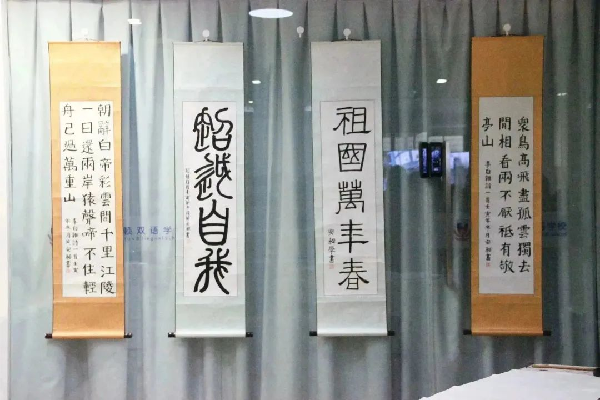 朝辭白帝彩雲間千里江陵
一日還兩岸猿聲啼不住輕
舟已過萬重山
超越自我
祖國萬年春
眾鳥高飛盡孤雲獨去
閒相看兩不厭祗有敬
亭山
双语学